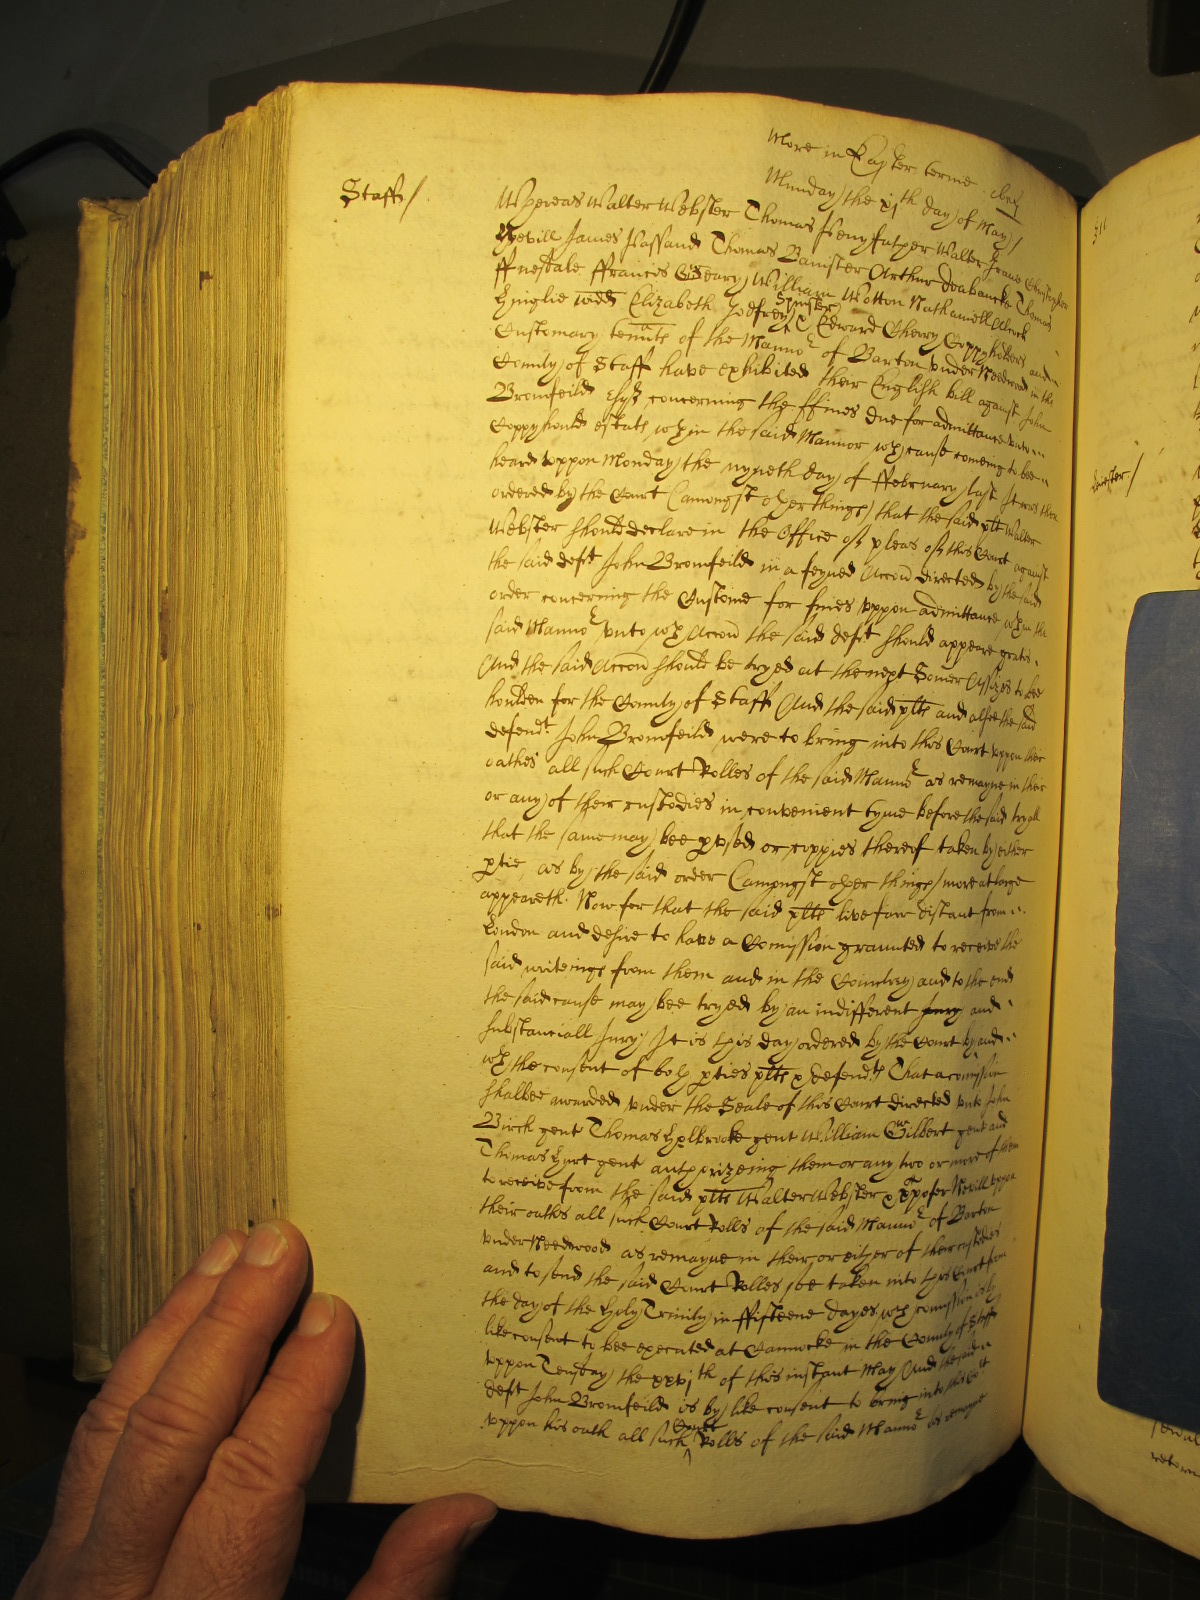 More in Easter terme
Munday the xjth day of May /
Staff /
Whereas Walter Webster Thomas Walter
Nevill James Passand Thomas Banister Arthur Thomas
ffrancis William Wotton Nathaniell Alcock
widd Elizabeth Godfrey Spinster & Edward Cherry Coppyholders and
Customary tennts of the Mannor of Barton under Needwood in the
County of Staff have exhibited their English bill against John
Bromfeild Esqr concerning the ffines due for admittance unto
Coppyhould estats wch in the said Mannor wch cause comeing to bee
heard uppon Monday the nyneth day of ffebruary last It was then
ordered by the Court (amongst other things) that the said plt Walter
Webster should declare in the Office of pleas of this Court against
the said deft John Bromfeild in a feyned Accon directed by the said
order concerning the Custome for fines uppon admittance wthin the
said Mannor unto wch Accon the said deft should appeare gratis
And the said Accon should be tryed at the next Somer Assizes to bee
houlden for the County of Staff And the said plts and alsoe the said
defendt John Bromfeild were to bring into this Court uppon their
oathes all such Court Rolles of the said Mannor as remayne in their
or any of their custodies in convenient tyme before the said tryall
that the same may bee pused or coppies thereof taken by either
ptie, as by the said order (amongst other things) more at large
appeareth. Now for that the said plts live farr distant from
London and desire to have a Comission graunted to receive the
said writeings from them and in the Countrey and to the end
the said cause may bee tryed by an indifferent Jury and
substanciall Jury; It is this day ordered by the Court by and
wth the consent of both pties plts & defendts That a comission
shalbee awarded under the Seale of this Court directed unto John
Birch gent Thomas Holbrooke gent William Gilbert gent and
Thomas Hurt gent authorizeing them or any two or more of them
to receive from the said plts Walter Webster & Xpofer Nevill uppon
their oathes all such Court Rolls of the said Mannor of Barton
under Needwood as remayne in their or either of their custodies
and to send the said Court Rolles soe taken into this Court from
the day of the Holy Trinity in ffifteene dayes wch comission is by
like consent to bee executed at Cannocke in the County of Staff
uppon Tuesday the xxvjth of this instant May And the said
deft John Bromfeild is by like consent to bring into this Court
uppon his oath all such Court Rolls of the said Mannor as remayne